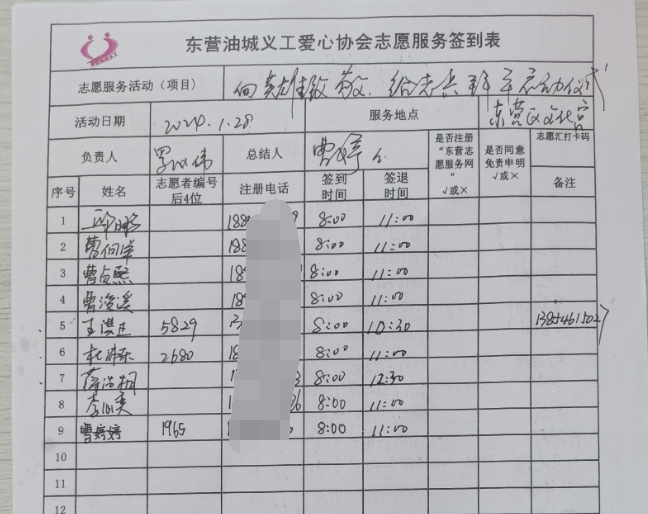 东营油城义工爱心协会志愿服务签到表
志愿服务活动（项目） 向英雄致敬. 给志兵 启动仪式
活动日期 2024.1.28 服务地点 东营区文化宫
负责人 总结人 曹婷 是否注册“东营志愿服务网”√或× 是否同意免责申明√或× 志愿汇打卡码
序号 姓名 志愿者编号后4位 注册电话 签到时间 签退时间 备注
1 188 9 8:00 11:00
2 曹向岸 188 8:00 11:00
3 曹贞熙 18 8:00 11:00
4 曹浚溪 18 8:00 11:00
5 王洪 5829 8:00 10:30 13854615027
6 杜 2680 18 8:00 11:00
7 薛浩桐 3 8:00 12:30
8 李 36 8:00 11:00
9 曹婷婷 1965 8:00 11:00
10
11
12